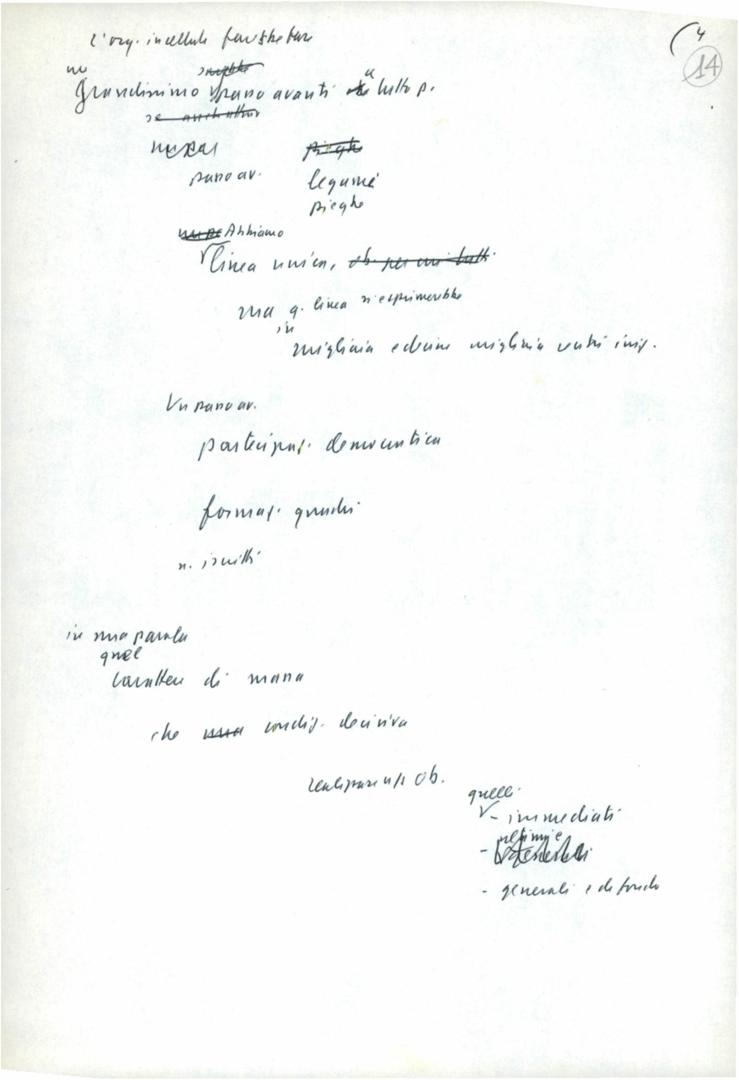 L'org. in cellule farebbe fare
(4
14
un
Grandissimo passo avanti a tutto p.
passo av.
legami
pieghe
Abbiamo
linea unica,
ma q. linea si esprimerebbe
in
migliaia e decine migliaia
Un passo av.
partecipaz. democratica
formaz. quadri
n. iscritti
in una parola
quel
carattere di massa
che condiz. decisiva
ob.
quelli
- immediati
-
- generali e di fondo